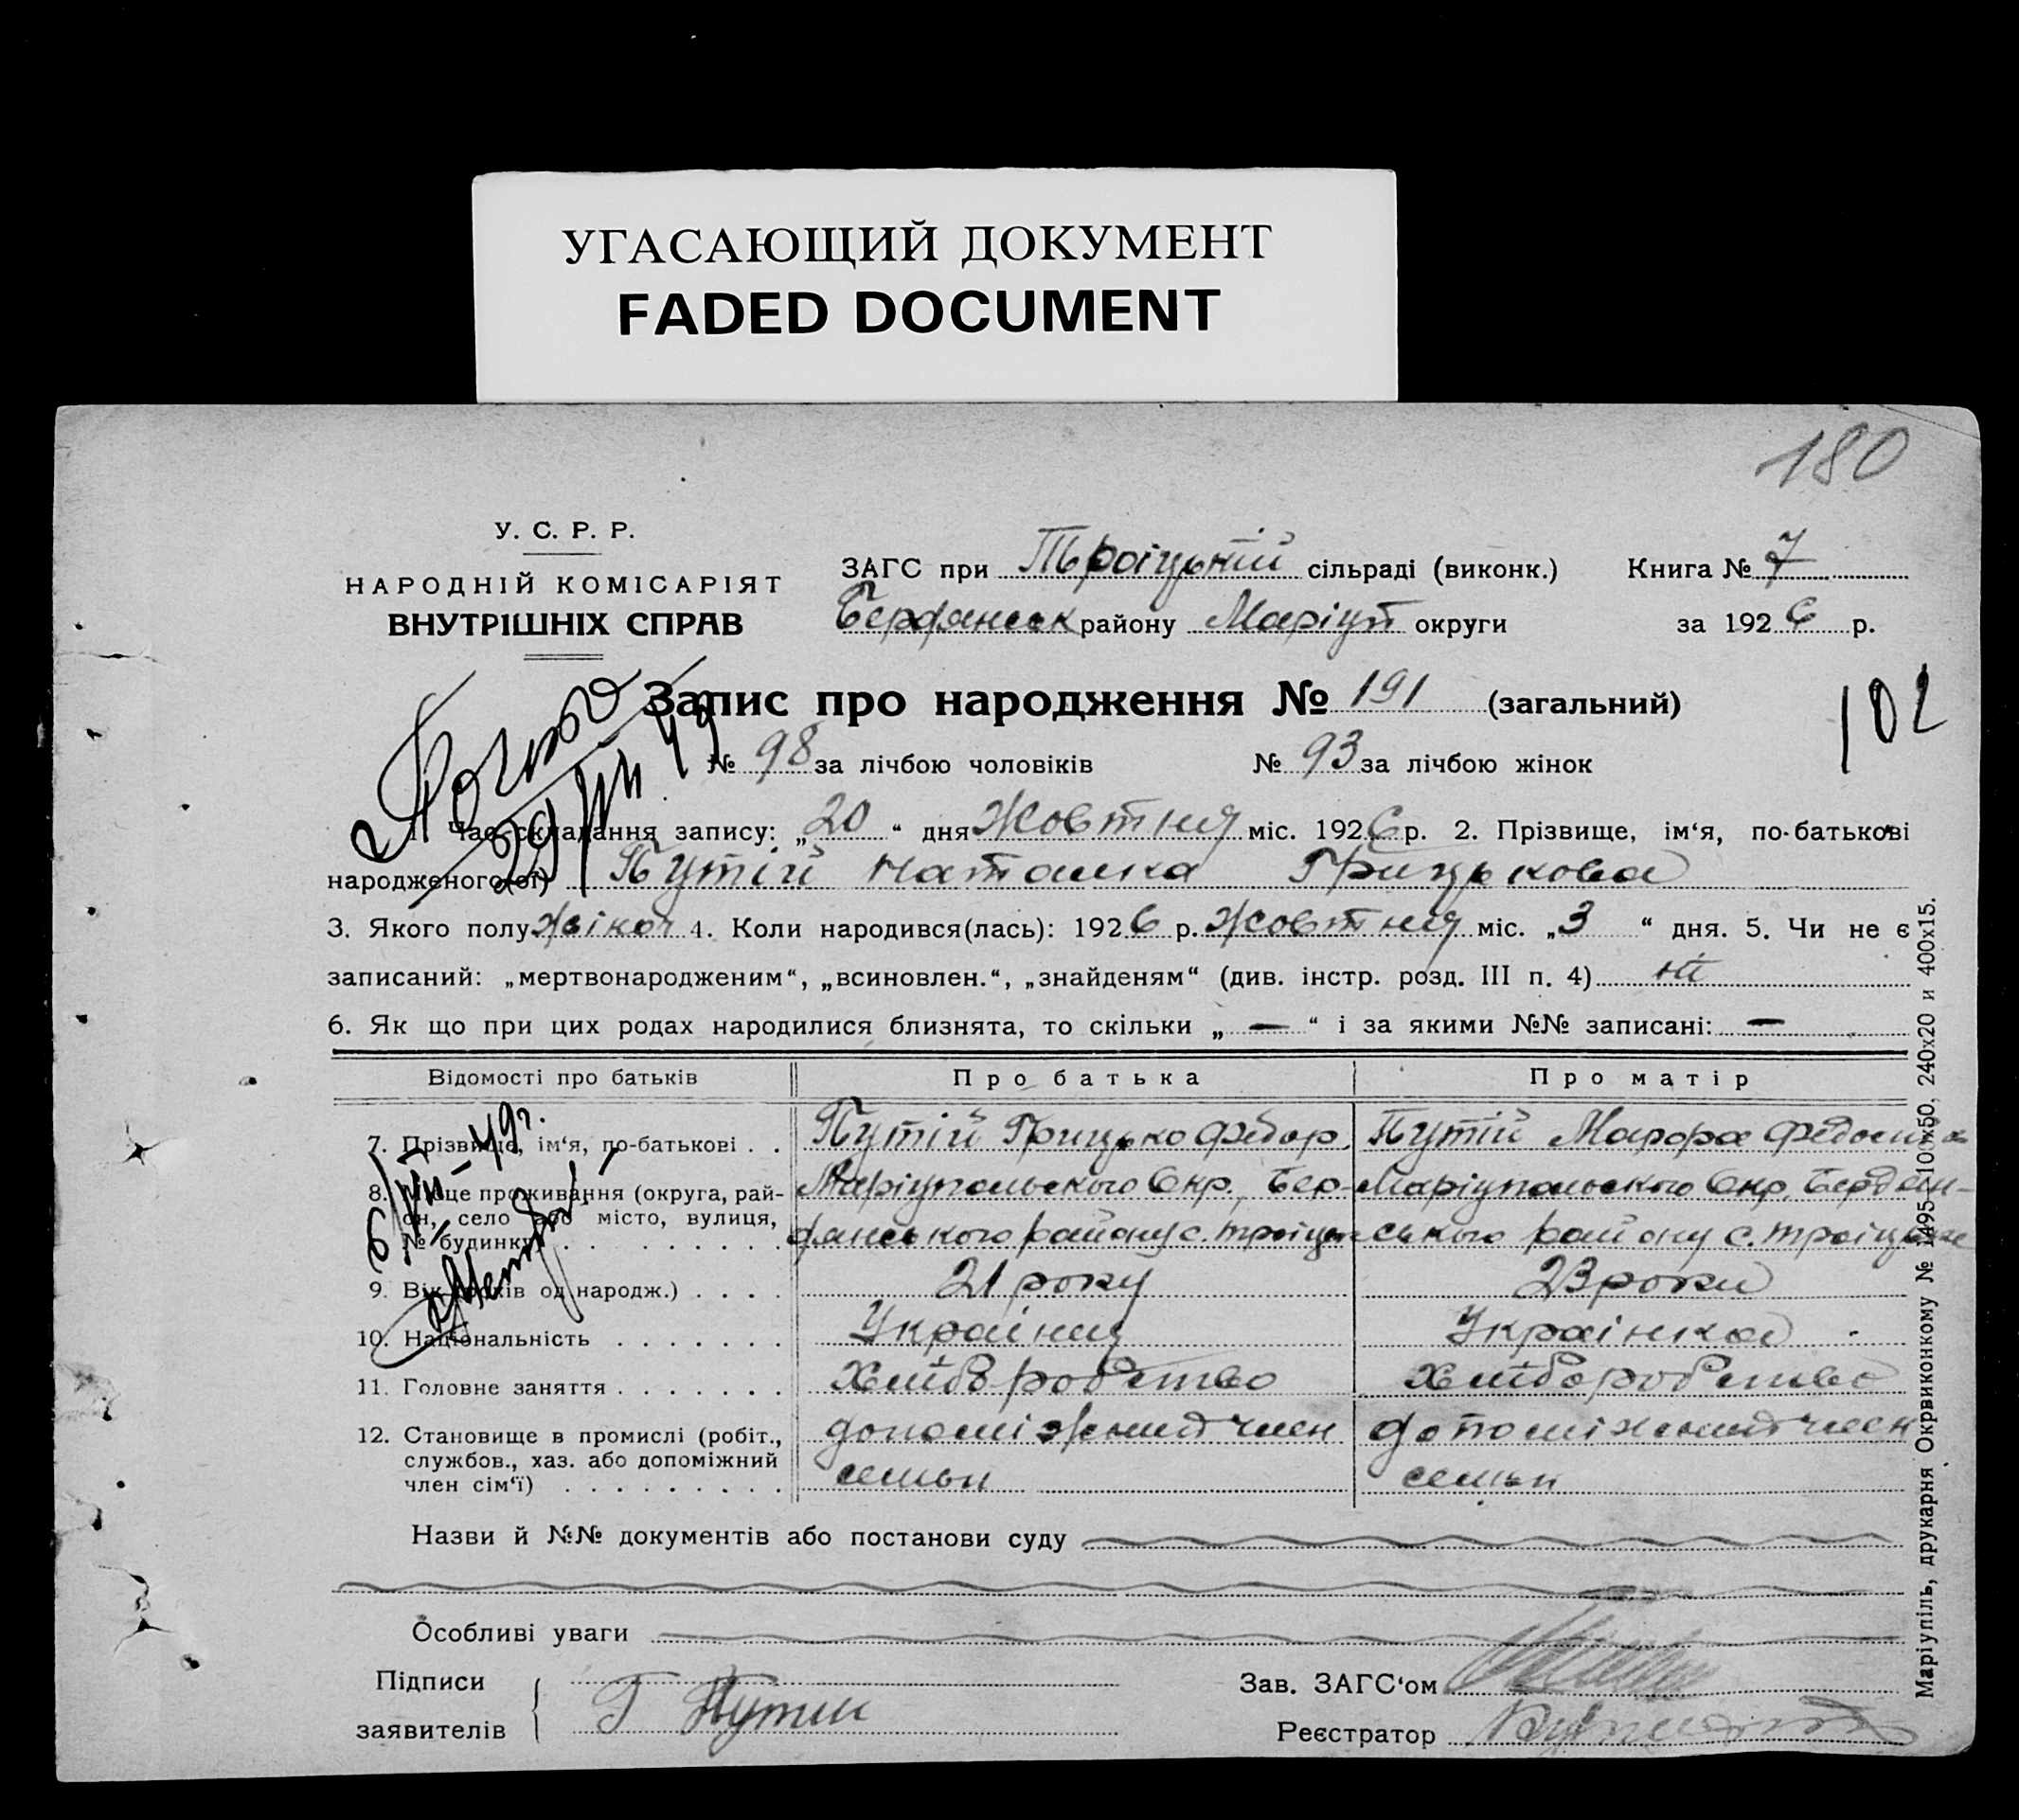 УГАСАЮЩИЙ ДОКУМЕНТ
FADED DOCUMENT
180
У. С. Р. Р.
НАРОДНІЙ КОМІСАРІЯТ
ВНУТРІШНІХ СПРАВ
ЗАГС при Троіцькій сільраді (виконк.) Книга № 7
Бердянськ району Маріуп округи за 1926 р.
Запис про народження № 191 (загальний)
102
№ 98 за лічбою чоловіків № 93 за лічбою жінок
29/VII 49
1. Час складання запису: „20“ дня Жовтня міс. 1926 р. 2. Прізвище, ім‘я, по-батькові
народженого(ої) Путій Наташка Грицькова
3. Якого полу жіноч 4. Коли народився(лась): 1926 р. Жовтня міс. „3“ дня. 5. Чи не є
записаний: „мертвонародженим“, „всиновлен.“, „знайденям“ (див. інстр. розд. III п. 4) ні
6. Як що при цих родах народилися близнята, то скільки „—“ і за якими №№ записані: —
Відомості про батьків Про батька Про матір
6/VII-49г.
7. Прізвище, ім‘я, по-батькові . . Путій Грицько Федор Путій
8. Місце проживання (округа, рай- Маріупольского Окр., Бер- Маріупольского Окр. Бердян-
он, село або місто, вулиця,
№ будинку) . . . . . . . . . дянського району с. Троіцьке ського району с. Троіцьке
9. Вік (років од народж.) . . . . 21 року 23 роки
10. Національність . . . . . . . Украінец Украінка
11. Головне заняття . . . . . . . Хліборобство Хліборобство
12. Становище в промислі (робіт., допоміжний член допоміжний член
службов., хаз. або допоміжний семьи семьи
член сім‘ї) . . . . . . . . .
Назви й №№ документів або постанови суду
Особливі уваги
Підписи
заявителів Г Путий
Зав. ЗАГС‘ом
Реєстратор
Маріупіль, друкарня Окрвиконкому № 1495—100х50, 240х20 и 400х15.